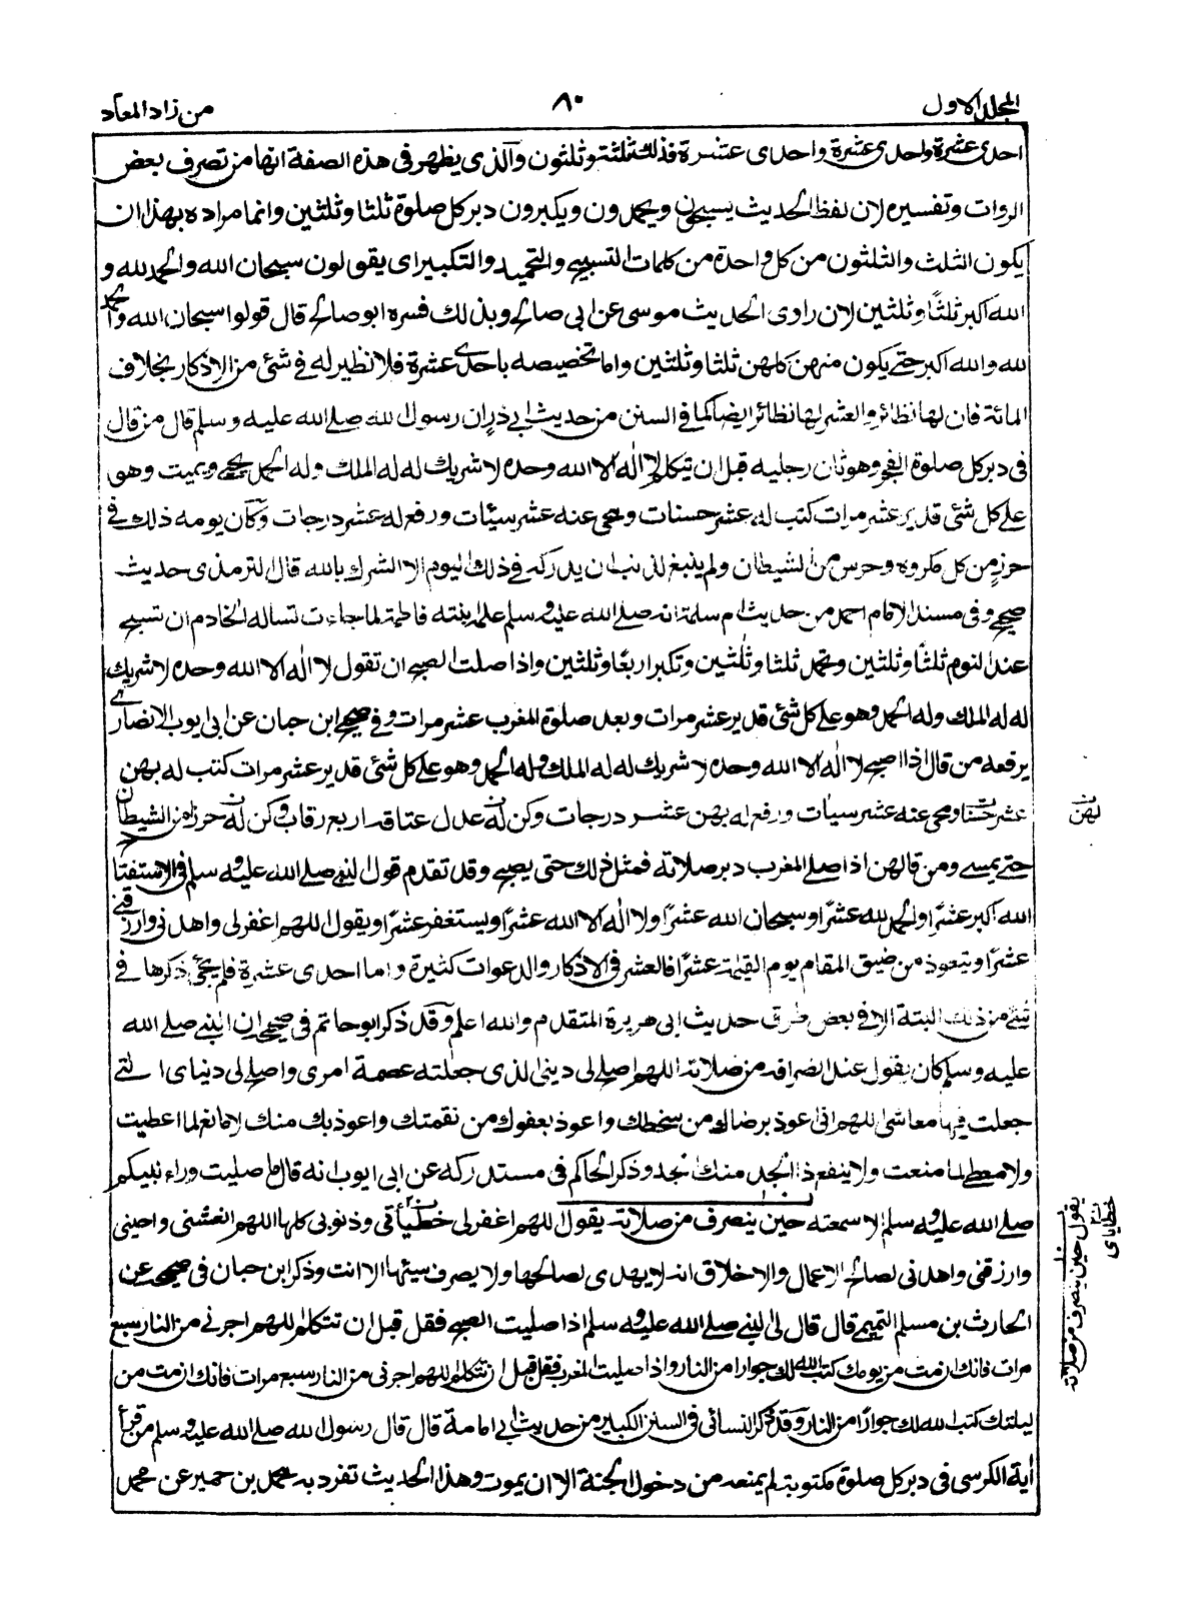 المجلد الاول
٨٠
من زاد المعاد
احدى عشرة واحدى عشرة واحدى عشرة فذلك ثلثة وثلثون والذى يظهر فى هذه الصفة انها من تصرف بعض
الروات وتفسيره لان لفظ الحديث يسبحون ويحمدون ويكبرون دبر كل صلوة ثلثا وثلثين وانما مراده بهذا ان
يكون الثلث والثلثون من كل واحدة من كلمات التسبيح والتحميد والتكبير اى يقولون سبحان الله والحمد لله و
الله اكبر ثلثًا وثلثين لان راوى الحديث موسى عن ابى صالح وبذلك فسره ابو صالح قال قولوا سبحان الله والحمد
لله والله اكبر حتے يكون منهن كلهن ثلثا وثلثين واما تخصيصه باحدى عشرة فلا نظير له فى شئ من الاذكار بخلاف
المائة فان لها نظائر والعشر لها نظائر ايضًا كما فى السنن من حديث ابى ذر ان رسول الله صلے الله عليه وسلم قال من قال
فى دبر كل صلوة الفجر وهو ثان رجليه قبل ان يتكلم لا اله الا الله وحده لا شريك له له الملك وله الحمد يحيے ويميت وهو
علے كل شئ قدير عشر مرات كتب له عشر حسنات ومحى عنه عشر سيئات ورفع له عشر درجات وكان يومه ذلك فے
حرز من كل مكروه وحرس من الشيطان ولم ينبغ لذنب ان يدركه فى ذلك اليوم الا الشرك بالله قال الترمذى حديث
صحيح وفى مسند الامام احمد من حديث ام سلمة انه صلے الله عليه وسلم علم ابنته فاطمة لما جاءت تساله الخادم ان تسبح
عند النوم ثلثًا وثلثين وتحمد ثلثا وثلثين وتكبر اربعًا وثلثين واذا صلت الصبح ان تقول لا اله الا الله وحده لا شريك
له له الملك وله الحمد وهو علے كل شئ قدير عشر مرات وبعد صلوة المغرب عشر مرات وفى صحيح ابن حبان عن ابى ايوب الانصارى
يرفعه من قال اذا اصبح لا اله الا الله وحده لا شريك له له الملك وله الحمد وهو علے كل شئ قدير عشر مرات كتب له بهن
عشر حسنات ومحى عنه عشر سيات ورفع له بهن عشر درجات وكن له عدل عتاقة اربع رقاب وكن له حرزا من الشيطان
حتے يمسے ومن قالهن اذا صلے المغرب دبر صلاته فمثل ذلك حتى يصبح وقد تقدم قول النبے صلے الله عليه وسلم فى الاستفتاح
الله اكبر عشرًا والحمد لله عشرًا وسبحان الله عشرًا ولا اله الا الله عشرًا ويستغفر عشرًا ويقول اللهم اغفر لى واهدنى وارزقنے
عشرًا ويتعوذ من ضيق المقام يوم القيمة عشرًا فالعشر فى الاذكار والدعوات كثيرة واما احدى عشرة فلم يجئ ذكرها فے
شئ من ذلك البتة الا فى بعض طرق حديث ابى هريرة المتقدم والله اعلم وقد ذكر ابو حاتم فى صحيحه ان النبے صلے الله
عليه وسلم كان يقول عند انصرافه من صلاته اللهم اصلح لى دينى الذى جعلته عصمة امرى واصلح لى دنياى التے
جعلت فيها معاشى اللهم انى اعوذ برضاك من سخطك واعوذ بعفوك من نقمتك واعوذ بك منك لا مانع لما اعطيت
ولا معطے لما منعت ولا ينفع ذا الجد منك الجد وذكر الحاكم فى مستدركه عن ابى ايوب انه قال ما صليت وراء نبيكم
صلے الله عليه وسلم الا سمعته حين ينصرف من صلاته يقول اللهم اغفر لى خطيأتى وذنوبى كلها اللهم انعشنى واحينى
وارزقنى واهدنى لصالح الاعمال والاخلاق انه لا يهدى لصالحها ولا يصرف سيئها الا انت وذكر ابن حبان فى صحيحه عن
الحارث بن مسلم التميمے قال قال لى النبے صلے الله عليه وسلم اذا صليت الصبح فقل قبل ان تتكلم اللهم اجرنے من النار سبع
مرات فانك ان مت من يومك كتب الله لك جوارا من النار واذا صليت المغرب فقل قبل ان تتكلم اللهم اجرنى من النار سبع مرات فانك ان مت من
ليلتك كتب الله لك جوارًا من النار وقد ذكر النسائى فى السنن الكبير من حديث ابى امامة قال قال رسول الله صلے الله عليه وسلم من قرأ
أية الكرسى فى دبر كل صلوة مكتوبة لم يمنعه من دخول الجنة الا ان يموت وهذا الحديث تفرد به محمد بن حمير عن محمد
ن
لهن
خطاياى
يقول حين ينصرف من صلاته